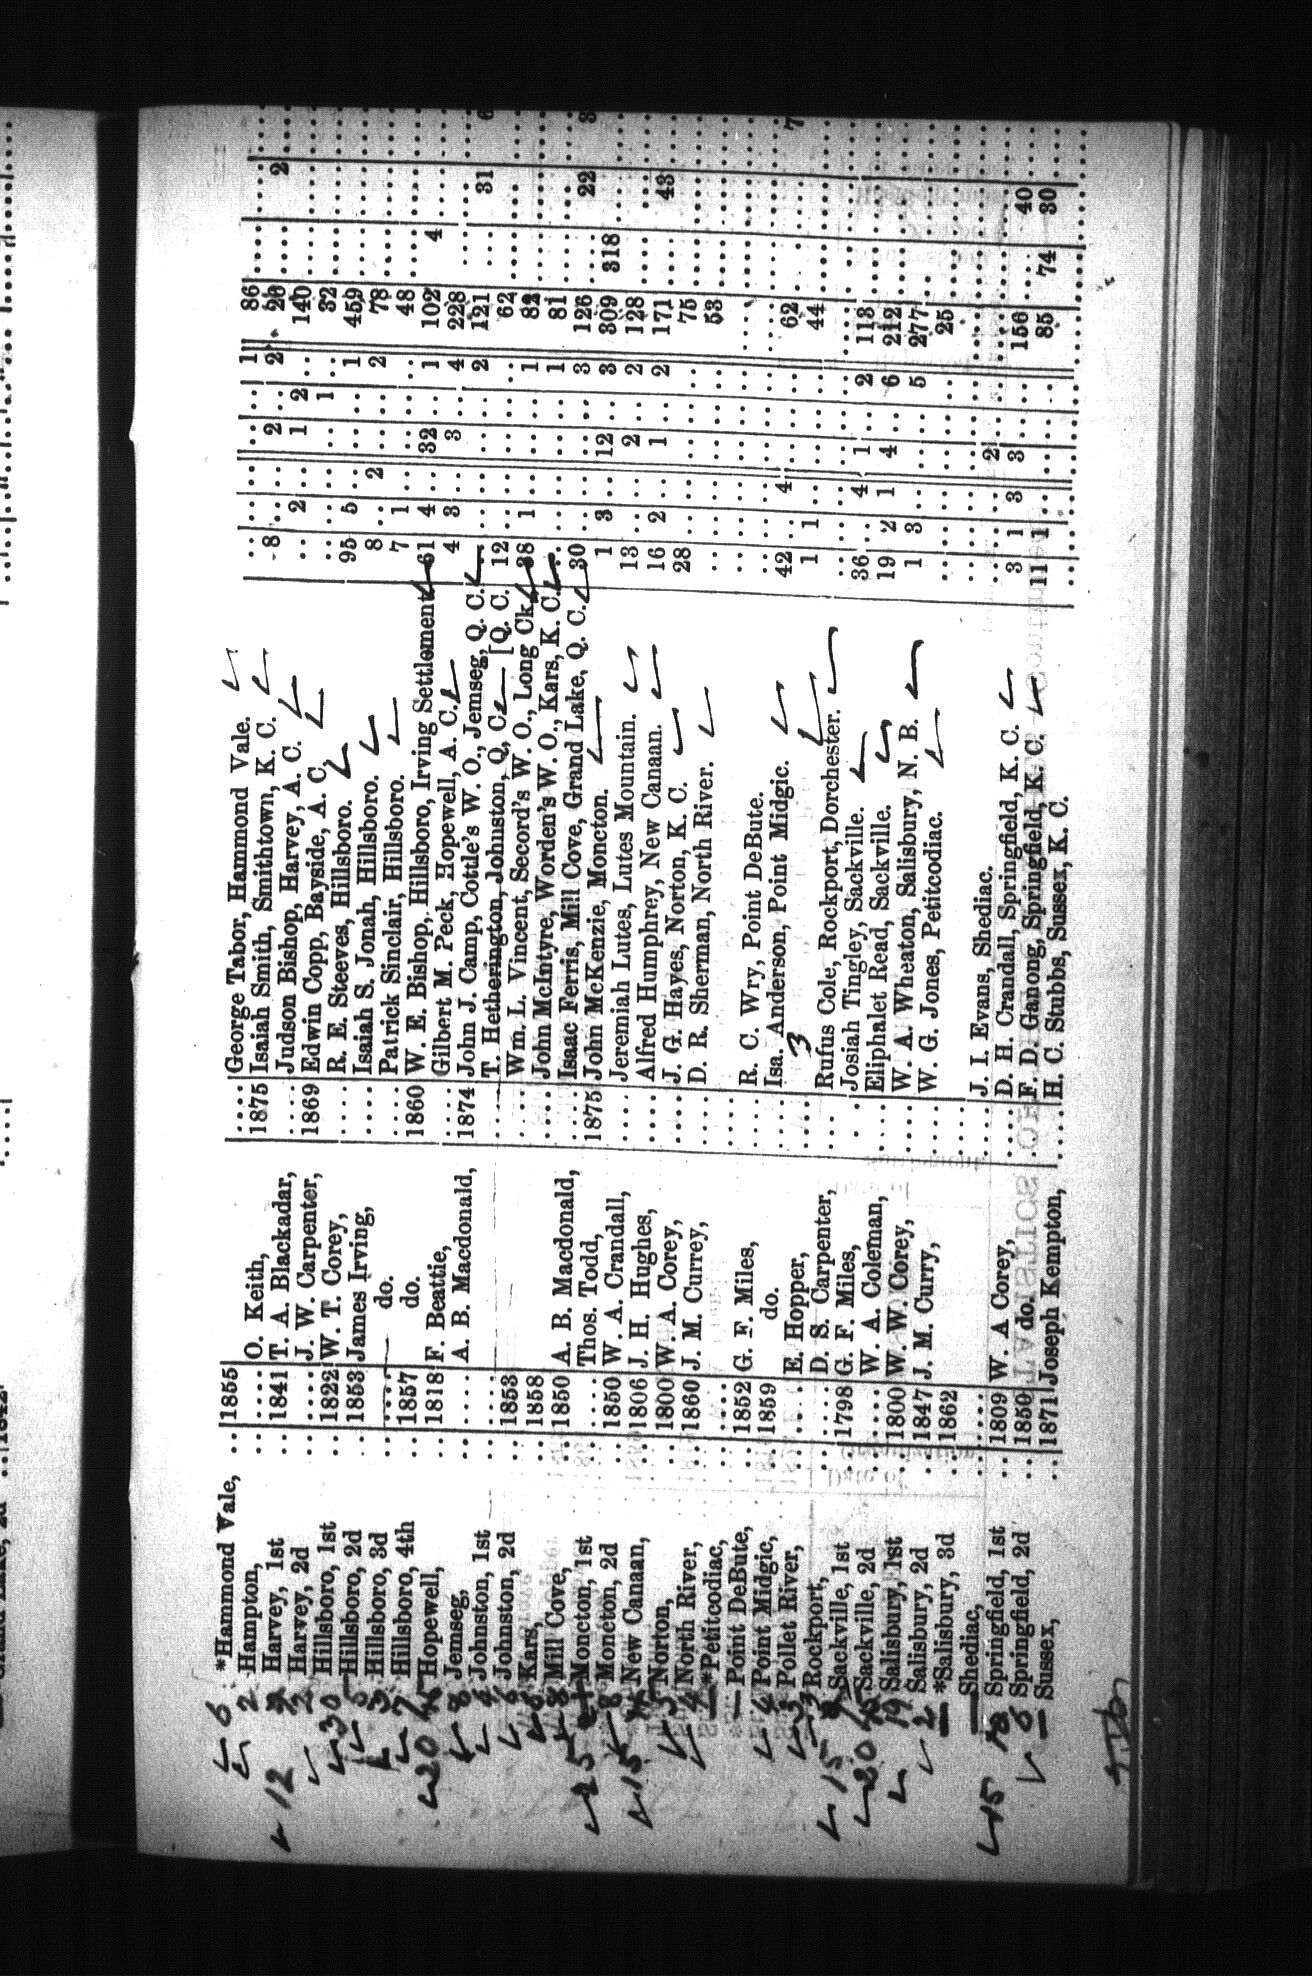 6 *Hammond Vale, .. 1855 .... George Tabor, Hammond Vale. 1 86
2 Hampton, .. .... O. Keith, 1875 Isaiah Smith, Smithtown, K. C. 8 2 2 2
12 Harvey, 1st .. 1841 T. A. Blackadar, .... Judson Bishop, Harvey, A. C. 2 1 2 140
2 Harvey, 2d .. .... J. W. Carpenter, 1869 Edwin Copp, Bayside, A. C. 1 32
30 Hillsboro, 1st .. 1822 W. T. Corey, .... R. E. Steeves, Hillsboro. 95 5 1 459
6 Hillsboro, 2d .. 1853 James Irving, .... Isaiah S. Jonah, Hillsboro. 8 2 2 78
3 Hillsboro, 3d .. .... do. .... Patrick Sinclair, Hillsboro. 7 1 48
7 Hillsboro, 4th .. 1857 do. 1860 W. E. Bishop, Hillsboro, Irving Settlement 61 4 32 1 102 4
20 Hopewell, .. 1818 F. Beattie, .... Gilbert M. Peck, Hopewell, A. C. 4 3 3 4 228
8 Jemseg, .. .... A. B. Macdonald, 1874 John J. Camp, Cottle's W. O., Jemseg, Q. C. 2 121 31 6
4 Johnston, 1st .. .... T. Hetherington, Johnston, Q, C. [Q. C. 12 62
6 Johnston, 2d .. 1853 .... Wm. L. Vincent, Secord's W. O., Long Ck. 38 1 1 82
Kars, .. 1858 .... John McIntyre, Worden's W. O., Kars, K. C. 1 81
8 Mill Cove, .. 1850 A. B. Macdonald, .... Isaac Ferris, Mill Cove, Grand Lake, Q. C. 30 3 126 22 3
25 Moncton, 1st .. .... Thos. Todd, 1875 John McKenzie, Moncton. 1 3 12 3 309 318
8 Moncton, 2d .. 1850 W. A. Crandall, .... Jeremiah Lutes, Lutes Mountain. 13 2 2 128
15 *New Canaan, .. 1806 J. H. Hughes, .... Alfred Humphrey, New Canaan. 16 2 1 2 171 43
Norton, .. 1800 W. A. Corey, .... J. G. Hayes, Norton, K. C. 28 75
North River, .. 1860 J. M. Currey, .... D. R. Sherman, North River. 53
*Petitcodiac, .. ....
Point DeBute, .. 1852 G. F. Miles, .... R. C. Wry, Point DeBute.
Point Midgic, .. 1859 do. .... Isa. Anderson, Point Midgic. 42 4 62
3 Pollet River, .. .... E. Hopper, .... 3 1 1 44
Rockport, .. .... D. S. Carpenter, .... Rufus Cole, Rockport, Dorchester.
15 Sackville, 1st .. 1798 G. F. Miles, .... Josiah Tingley, Sackville. 36 4 1 2 113
20 Sackville, 2d .. .... W. A. Coleman, .... Eliphalet Read, Sackville. 19 2 1 4 6 212
19 Salisbury, 1st .. 1800 W. W. Corey, .... W. A. Wheaton, Salisbury, N. B. 1 3 5 277
2 Salisbury, 2d .. 1847 J. M. Curry, .... W. G. Jones, Petitcodiac. 25
*Salisbury, 3d .. 1862 ....
Shediac, .. .... J. I. Evans, Shediac. 2
15 Springfield, 1st .. 1809 W. A Corey, .... D. H. Crandall, Springfield, K. C. 3 1 3 3 156 40
6 Springfield, 2d .. 1850 do. .... F. D. Ganong, Springfield, K. C. 11 1 85 74 30
Sussex, .. 1871 Joseph Kempton, .... H. C. Stubbs, Sussex, K. C.